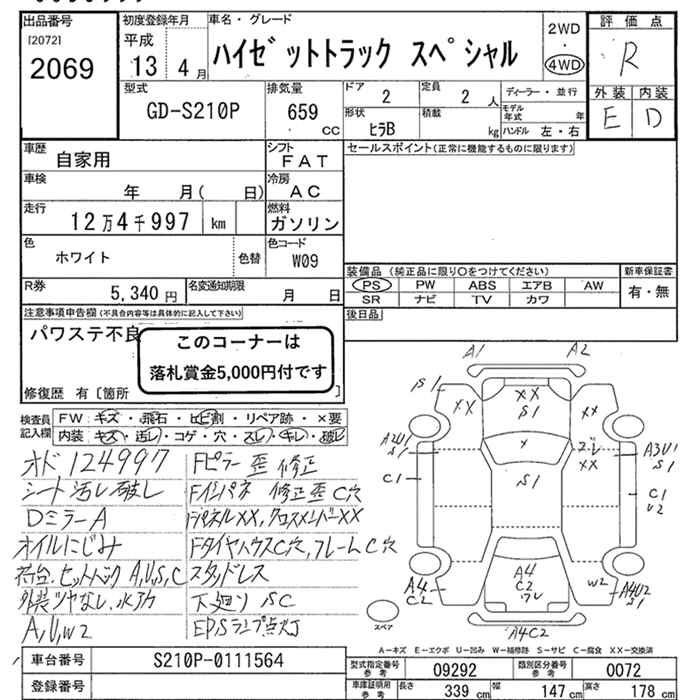 出品番号
[2072]
2069
初度登録年月
平成
13 4 月
車名・グレード
ハイゼットトラック スペシャル
2WD
・
4WD
評価点
R
外装 内装
E D
型式
GD-S210P
排気量
659 cc
ドア
2
定員
2 人
形状
ヒラB
積載
kg
ディーラー・並行
モデル年式 年
ハンドル 左・右
車歴
自家用
シフト
FAT
セールスポイント(正常に機能するものに限ります)
車検
年 月( 日)
冷房
AC
走行
12万4千997 km
燃料
ガソリン
色
ホワイト
色替
色コード
W09
装備品 (純正品に限り○をつけてください)
新車保証書
PS PW ABS エアB AW
SR ナビ TV カワ
有・無
R券
5,340 円
名変通知期限
月 日
後日品
注意事項申告欄(不具合内容等は具体的に記入して下さい)
パワステ不良
このコーナーは
落札賞金5,000円付です
修復歴 有〔箇所 〕
検査員記入欄
FW キズ・飛石・ヒビ割・リペア跡・×要
内装 キズ・汚レ・コゲ・穴・スレ・キレ・破レ
オド 124997
シート汚レ破レ
DミラーA
オイルにじみ
荷台.セットバック A,U,S,C
外装ツヤなし.水アカ
A,U,W2
Fピラー歪 修正
Fインパネ 修正歪 C穴
FパネルXX,クロスメンバーXX
FタイヤハウスC穴,フレームC穴
スタッドレス
下廻り SC
EPSランプ点灯
A1 A2
S1
XX
XX
S1
XX
A2U1
S1
×
XX
A3U1
S1
C1
S1
C1
U2
A4
C2
A4
C2
W2
A4U2
S1
A4C2
スペア
A-キズ E-エクボ U-凹み W-補修跡 S-サビ C-腐食 XX-交換済
車台番号
S210P-0111564
登録番号
型式指定番号参考
09292
類別区分番号参考
0072
車庫証明用参考
長さ 339 cm
幅 147 cm
高さ 178 cm